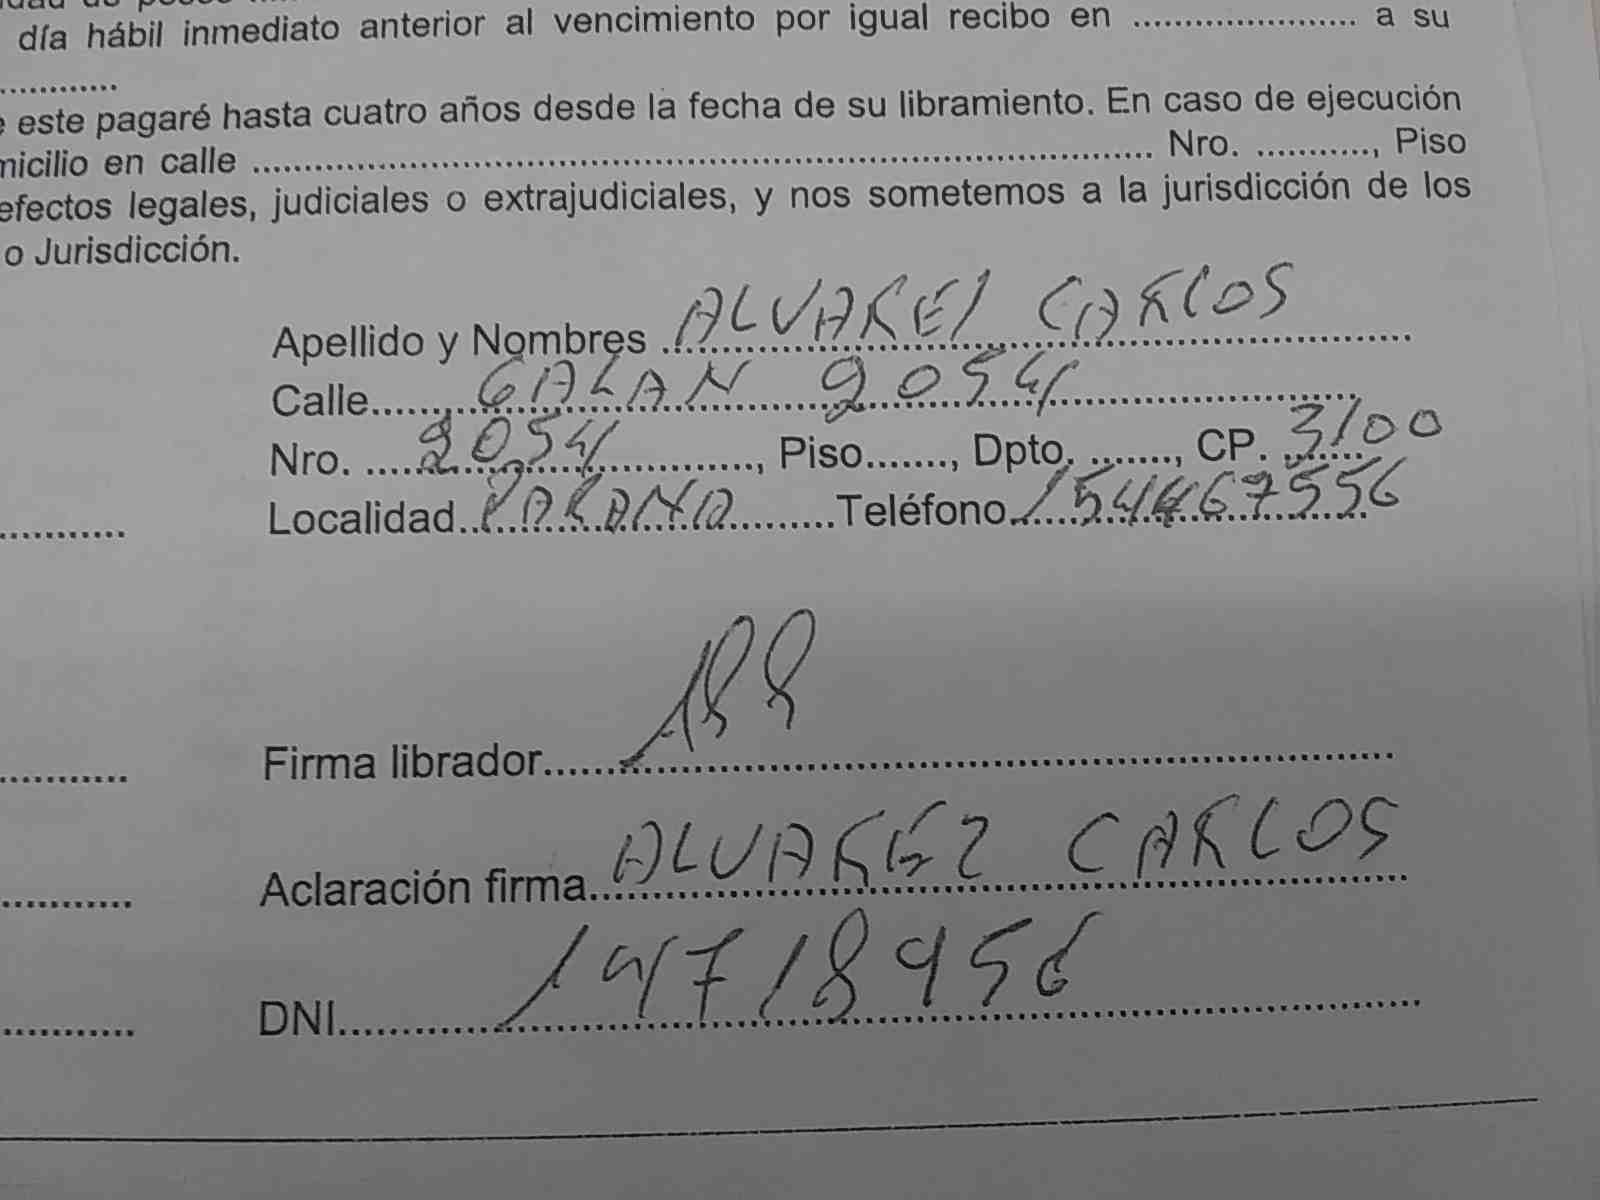 día hábil inmediato anterior al vencimiento por igual recibo en ...................... a su
............
este pagaré hasta cuatro años desde la fecha de su libramiento. En caso de ejecución
micilio en calle .......................................................................... Nro. ..........., Piso
efectos legales, judiciales o extrajudiciales, y nos sometemos a la jurisdicción de los
o Jurisdicción.
Apellido y Nombres ALVAREZ CARLOS
Calle GALAN 2054
Nro. 2054, Piso......., Dpto. ......., CP. 3100
Localidad PARANA Teléfono 154467556
Firma librador
Aclaración firma ALVAREZ CARLOS
DNI 14718956